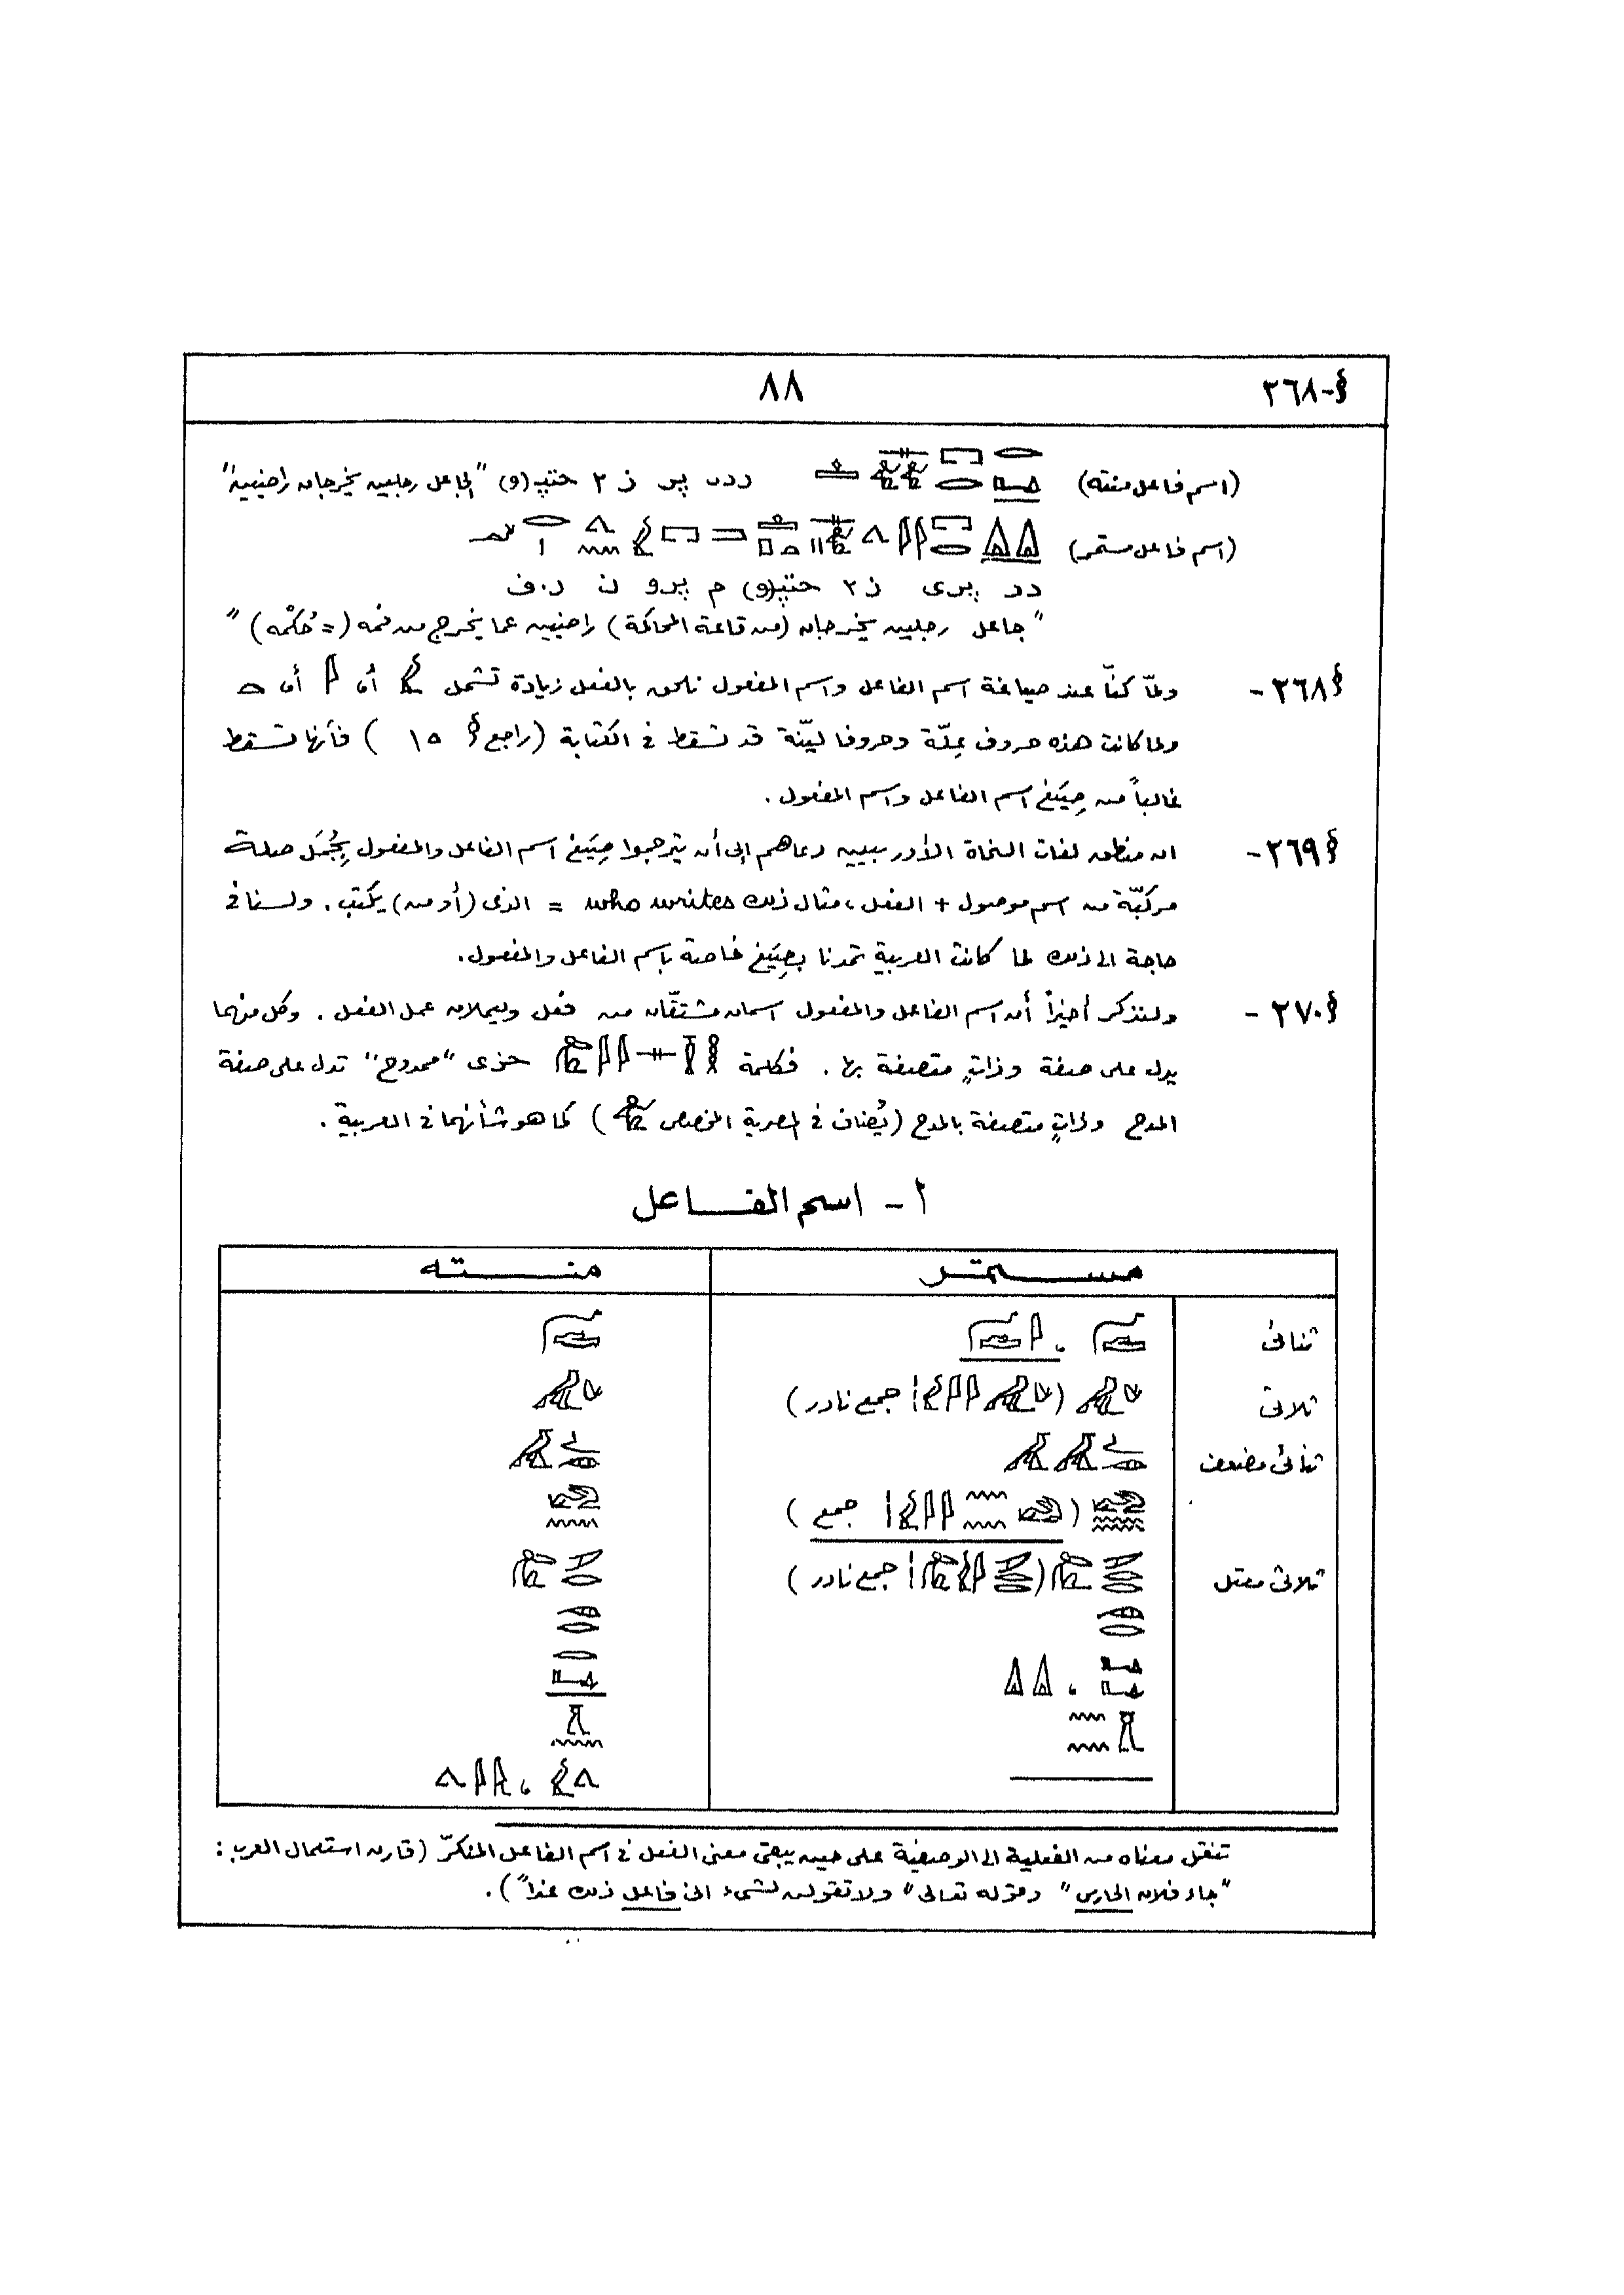 §-٢٦٨
٨٨
(اسم فاعل منته) ردى پر ز ٢ حتپ(و) "الجاعل رجلين يخرجان راضيين"
(اسم فاعل مستمر)
دد پرى ز ٢ حتپ(و) م پرو ن ر.ف
"جاعل رجلين يخرجان (من قاعة المحاكمة) راضيين عما يخرج من فمه (= حُكْمه)"
§٢٦٨- ولمّا كنّا عند صياغة اسم الفاعل واسم المفعول نلحق بالفعل زيادة تشمل أو أو
ولما كانت هذه حروف عِلّة وحروفا ليّنة قد تسقط فى الكتابة (راجع § ١٥ ) فأنها تسقط
غالباً من صِيَغ اسم الفاعل واسم المفعول.
§٢٦٩- ان منطق لغات النحاة الأوربيين دعاهم إلى أن يترجموا صِيَغ اسم الفاعل والمفعول بِجُمَل صلة
مركّبة من اسم موصول + الفعل، مثال ذلك who writes = الذى (أو من) يكتب. ولسنا فى
حاجة الى ذلك لما كانت العربية تمدنا بصِيَغ خاصة باسم الفاعل والمفعول.
§٢٧٠- ولنتذكر أخيراً أن اسم الفاعل والمفعول اسمان مشتقّان من فعل ويعملان عمل الفعل. وكل منهما
يدل على صفة وذاتٍ متصفة بها. فكلمة حزى "ممدوح" تدل على صفة
المدح وذاتٍ متصفة بالمدح (يُضاف فى المصرية المخصص ) كما هو شأنهما فى العربية.
أ - اسم الفاعل
مستمر
منته
ثنائى
ثلاثى
( جمع نادر)
ثنائى مضعف
( جمع )
ثلاثى معتل
( جمع نادر)
تنقل معناه من الفعلية الى الوصفية على حين يبقى معنى الفعل فى اسم الفاعل المنكّر (قارن استعمال العرب:
"جاء فلان الحارس" وقوله تعالى "ولا تقولن لشىء انى فاعل ذلك غداً").